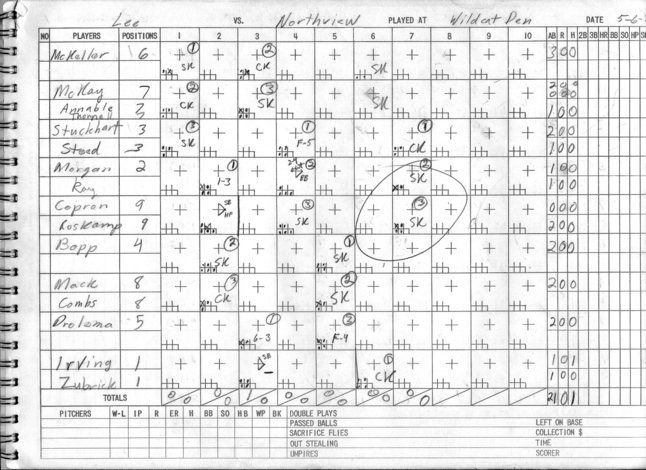 Lee VS. Northview PLAYED AT Wildcat Den DATE 5-6-
NO PLAYERS POSITIONS 1 2 3 4 5 6 7 8 9 10 AB R H 2B 3B HR BB SO HP
McKellor 6 1 SK 2 CK SK 3 0 0
McKay 7 2 CK 3 SK SK 2 0 0
0 0 0
Annable 3 1 0 0
Stuckhart 3 3 SK 1 F-5 1 CK 2 0 0
Steed 3 1 0 0
Morgan 2 1 1-3 BB 2 SK 1 0 0
Roy 1 0 0
Copron 9 SB HP 3 SK 3 SK 0 0 0
Roskamp 9 2 0 0
Bopp 4 2 SK 1 SK 2 0 0
Mack 8 3 CK 2 SK 2 0 0
Combs 8
Droloma 5 1 6-3 3 F-4 2 0 0
Irving 1 2B 1 CK 1 0 1
Zubrick 1 1 0 0
TOTALS 0 0 0 0 1 0 0 0 0 0 0 0 0 0 21 0 1
PITCHERS W-L IP R ER H BB SO HB WP BK DOUBLE PLAYS
PASSED BALLS LEFT ON BASE
SACRIFICE FLIES COLLECTION $
OUT STEALING TIME
UMPIRES SCORER